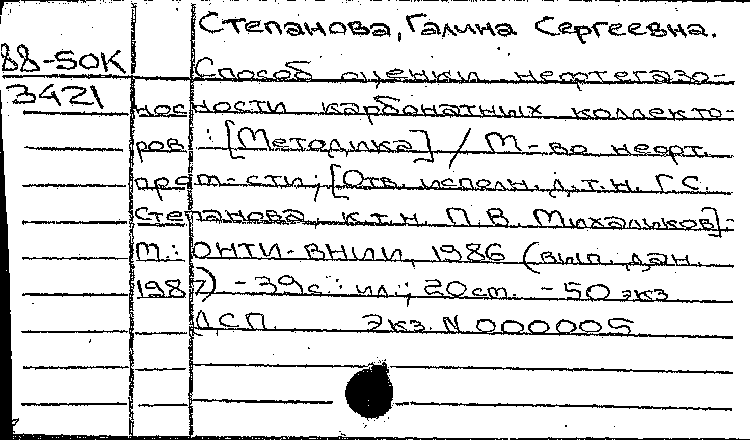 Степанова, Галина Сергеевна.
88-50К
Способ оценки нефтегазо-
3421
носности карбонатных коллекто-
ров : [Методика] / М-во нефт.
пром-сти; [Отв. исполн. д.т.н. Г.С.
Степанова, к.т.н. П.В. Михальков].-
М.: ОНТИ-ВНИИ, 1986 (вып. дан.
1987) - 39с : ил.; 20ст. - 50 экз
ДСП. Экз. N 000005